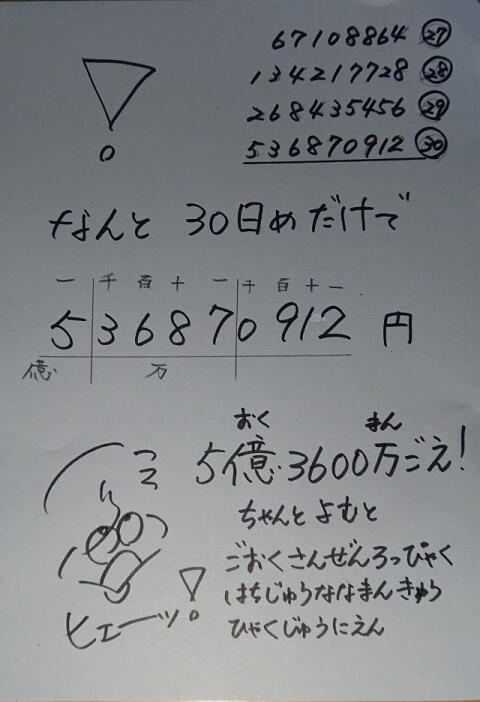 67108864 ㉗
134217728 ㉘
268435456 ㉙
536870912 ㉚
!
なんと 30日めだけで
一 千 百 十 一 千 百 十 一
536870912 円
億 万
おく まん
5億3600万ごえ!
ちゃんと よむと
ごおくさんぜんろっぴゃく
はちじゅうななまんきゅう
ひゃくじゅうにえん
ヒエーッ!